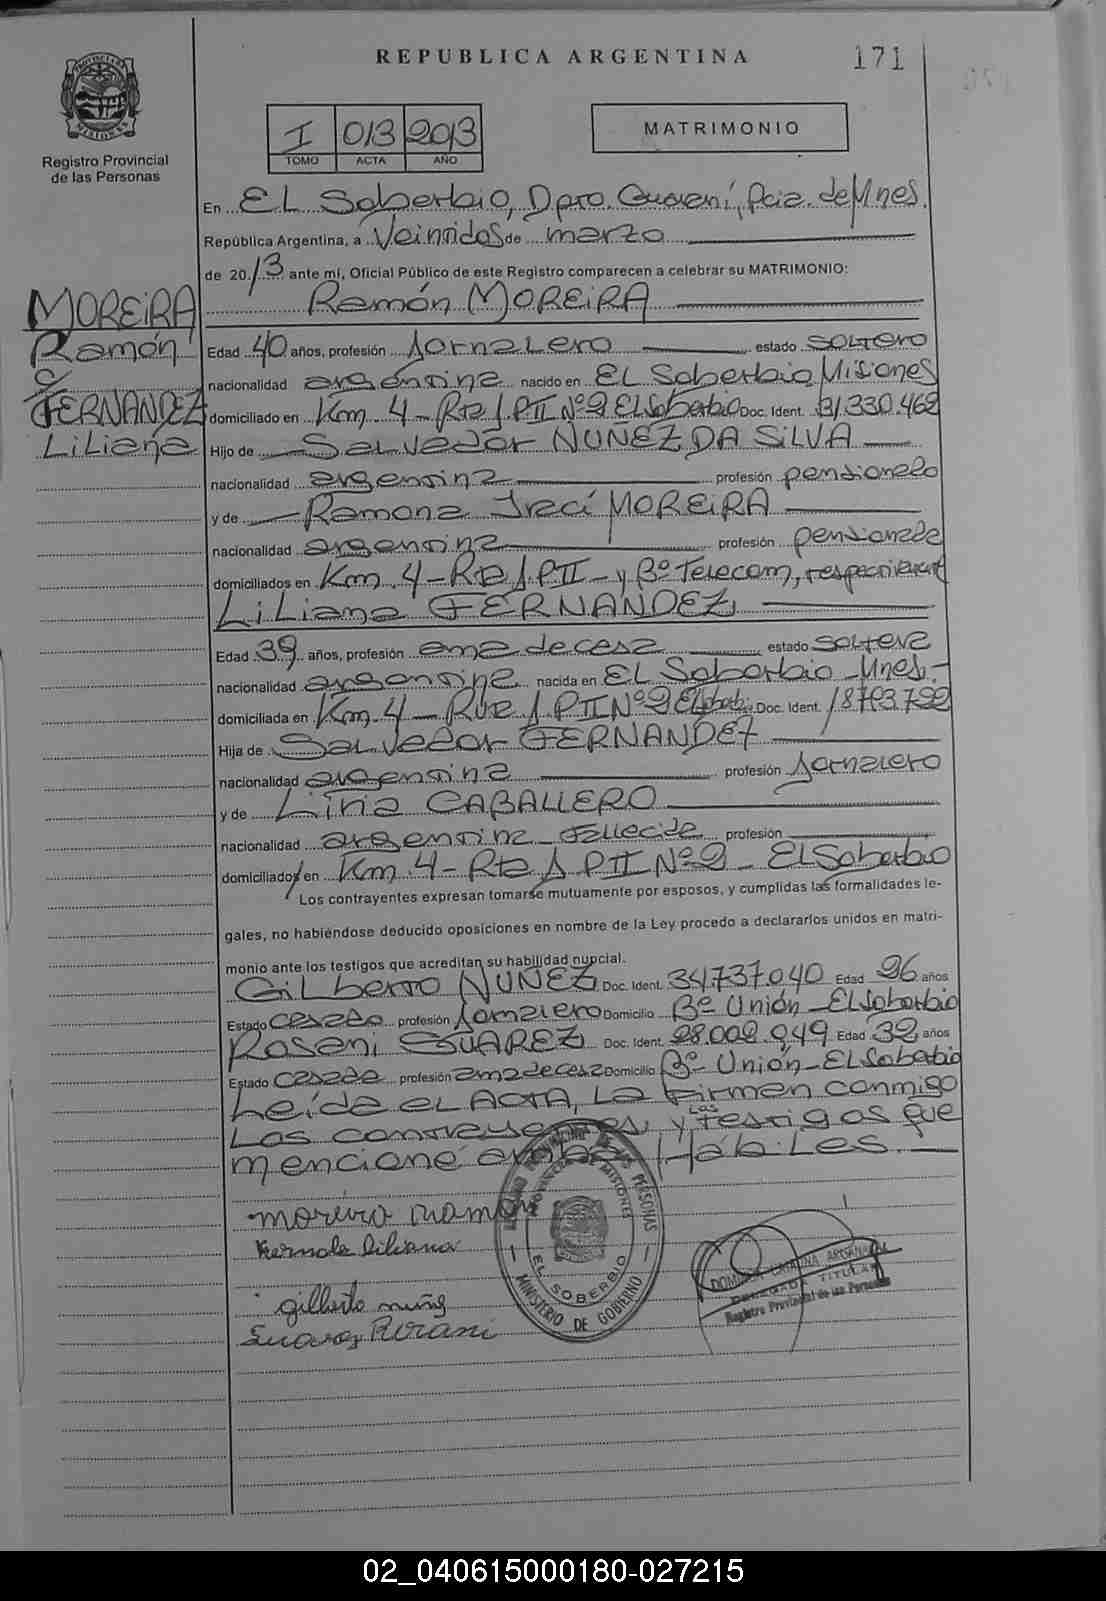 REPUBLICA ARGENTINA
171
PROVINCIA DE MISIONES
Registro Provincial
de las Personas
I 013 2013
TOMO ACTA AÑO
MATRIMONIO
En El Soberbio, Dpto. Guaraní, Pcia. de Mnes.
República Argentina, a Veintidos de marzo
de 2013 ante mi, Oficial Público de este Registro comparecen a celebrar su MATRIMONIO:
MOREIRA
Ramón
c/
FERNANDEZ
Liliana
Ramón MOREIRA
Edad 40 años, profesión Jornalero estado soltero
nacionalidad argentina nacido en El Soberbio Misiones
domiciliado en Km. 4 - Rta J. PII Nº 2 El Soberbio Doc. Ident. 31.330.462
Hijo de Salvador NUÑEZ DA SILVA
nacionalidad argentina profesión pensionado
y de Ramona Irací MOREIRA
nacionalidad argentina profesión pensionada
domiciliados en Km. 4 - Rta J. PII - y Bº Telecom, respectivament
Liliana FERNANDEZ
Edad 39 años, profesión ama de casa estado soltera
nacionalidad argentina nacida en El Soberbio - Mnes.-
domiciliada en Km. 4 - Ruta J PII Nº 2 El Soberbi. Doc. Ident. 18.793.792
Hija de Salvador FERNANDEZ
nacionalidad argentina profesión Jornalero
y de Liria CABALLERO
nacionalidad argentina - Fallecida profesión
domiciliados en Km. 4 - Rta J PII Nº 2 - El Soberbio
Los contrayentes expresan tomarse mutuamente por esposos, y cumplidas las formalidades le-
gales, no habiéndose deducido oposiciones en nombre de la Ley procedo a declararlos unidos en matri-
monio ante los testigos que acreditan su habilidad nupcial.
Gilberto NUÑEZ Doc. Ident. 34.737.040 Edad 26 años
Estado casado profesión Jornalero Domicilio Bº Unión - El Soberbio
Roseni SUAREZ Doc. Ident. 28.002.949 Edad 32 años
Estado casada profesión ama de casa Domicilio Bº Unión - El Soberbio
Leída el ACTA, la firman conmigo
los contrayentes, y los testigos que
mencioné ambos Hábiles.
moreira ramon
Liliana
gilberto nuñz
Suarez
REGISTRO PROVINCIAL DE LAS PERSONAS
PROVINCIA DE MISIONES
EL SOBERBIO
MINISTERIO DE GOBIERNO
CATALINA
TITULAR
Registro Provincial de las Personas
02_040615000180-027215